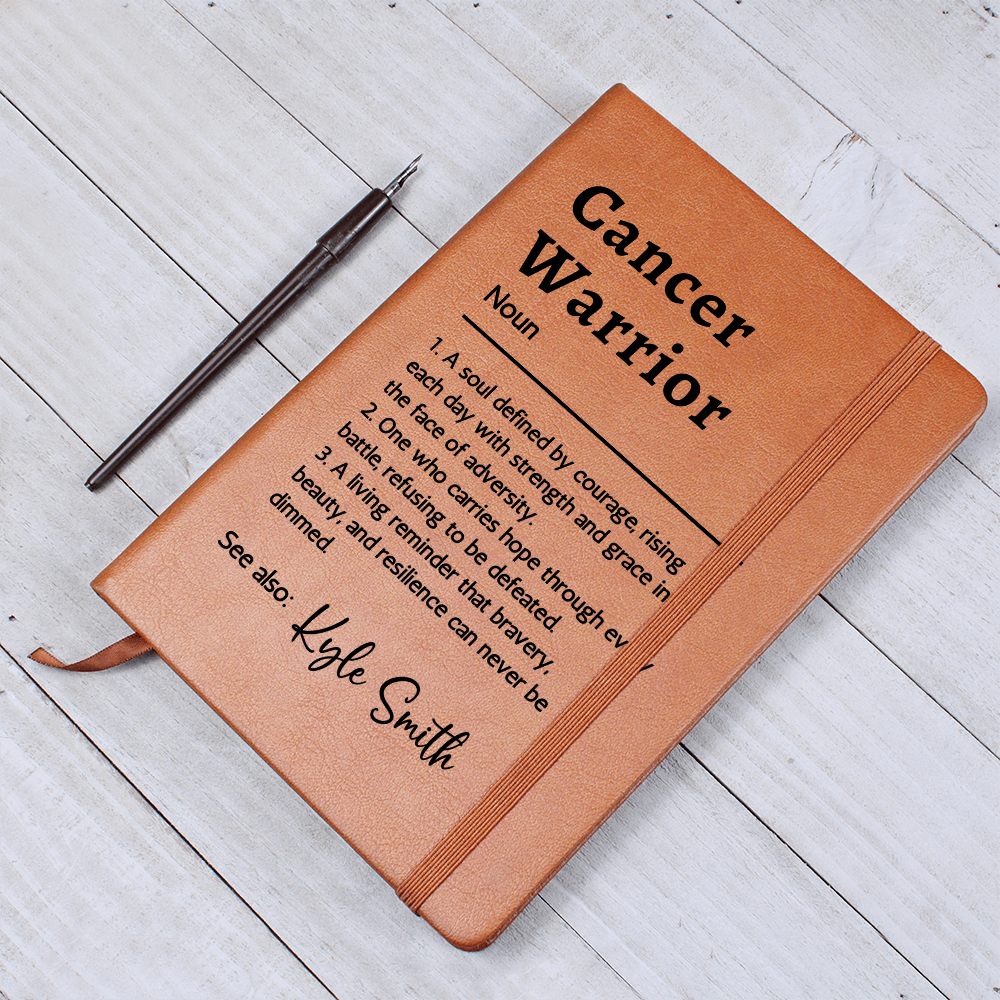 Cancer
Warrior
Noun
1. A soul defined by courage, rising
each day with strength and grace in
the face of adversity.
2. One who carries hope through
battle, refusing to be defeated.
3. A living reminder that bravery,
beauty, and resilience can never be
dimmed.
See also: Kyle Smith